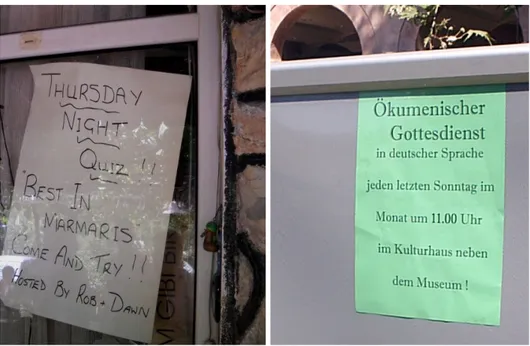 THURSDAY
NIGHT
QUIZ !!
"BEST IN
MARMARIS
COME AND TRY!!
HOSTED BY ROB + DAWN
M GİBİ Bİ
Ökumenischer
Gottesdienst
in deutscher Sprache
jeden letzten Sonntag im
Monat um 11.00 Uhr
im Kulturhaus neben
dem Museum !